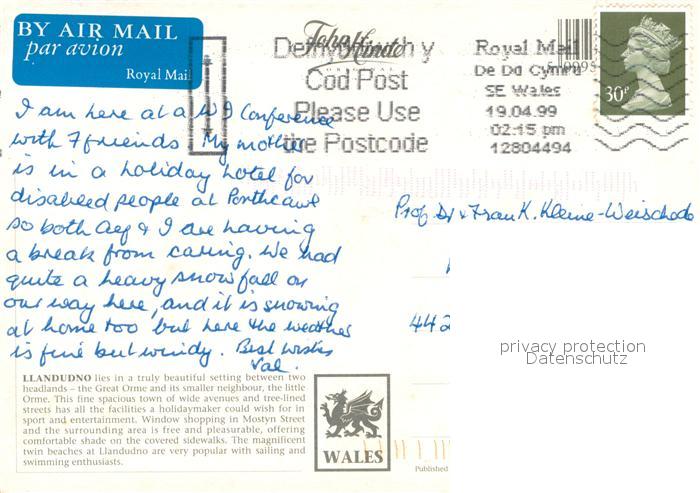 BY AIR MAIL
par avion
Royal Mail
Cod Post
Please Use
the Postcode
Royal Mail
De Dd Cymru
SE Wales
19.04.99
02:15 pm
12804494
30P
I am here at a WI Conference
with 7 friends My mother
is in a holiday hotel for
disabled people at Porthcawl
so both & I are having
a break from caring. We had
quite a heavy snowfall on
our way here, and it is snowing
at home too but here the weather
is fine but windy. Best wishes
Val.
Prof. Dr & Frau K. Kleine-Weischede
442
privacy protection
Datenschutz
LLANDUDNO lies in a truly beautiful setting between two
headlands – the Great Orme and its smaller neighbour, the little
Orme. This fine spacious town of wide avenues and tree-lined
streets has all the facilities a holidaymaker could wish for in
sport and entertainment. Window shopping in Mostyn Street
and the surrounding area is free and pleasurable, offering
comfortable shade on the covered sidewalks. The magnificent
twin beaches at Llandudno are very popular with sailing and
swimming enthusiasts.
WALES
Published